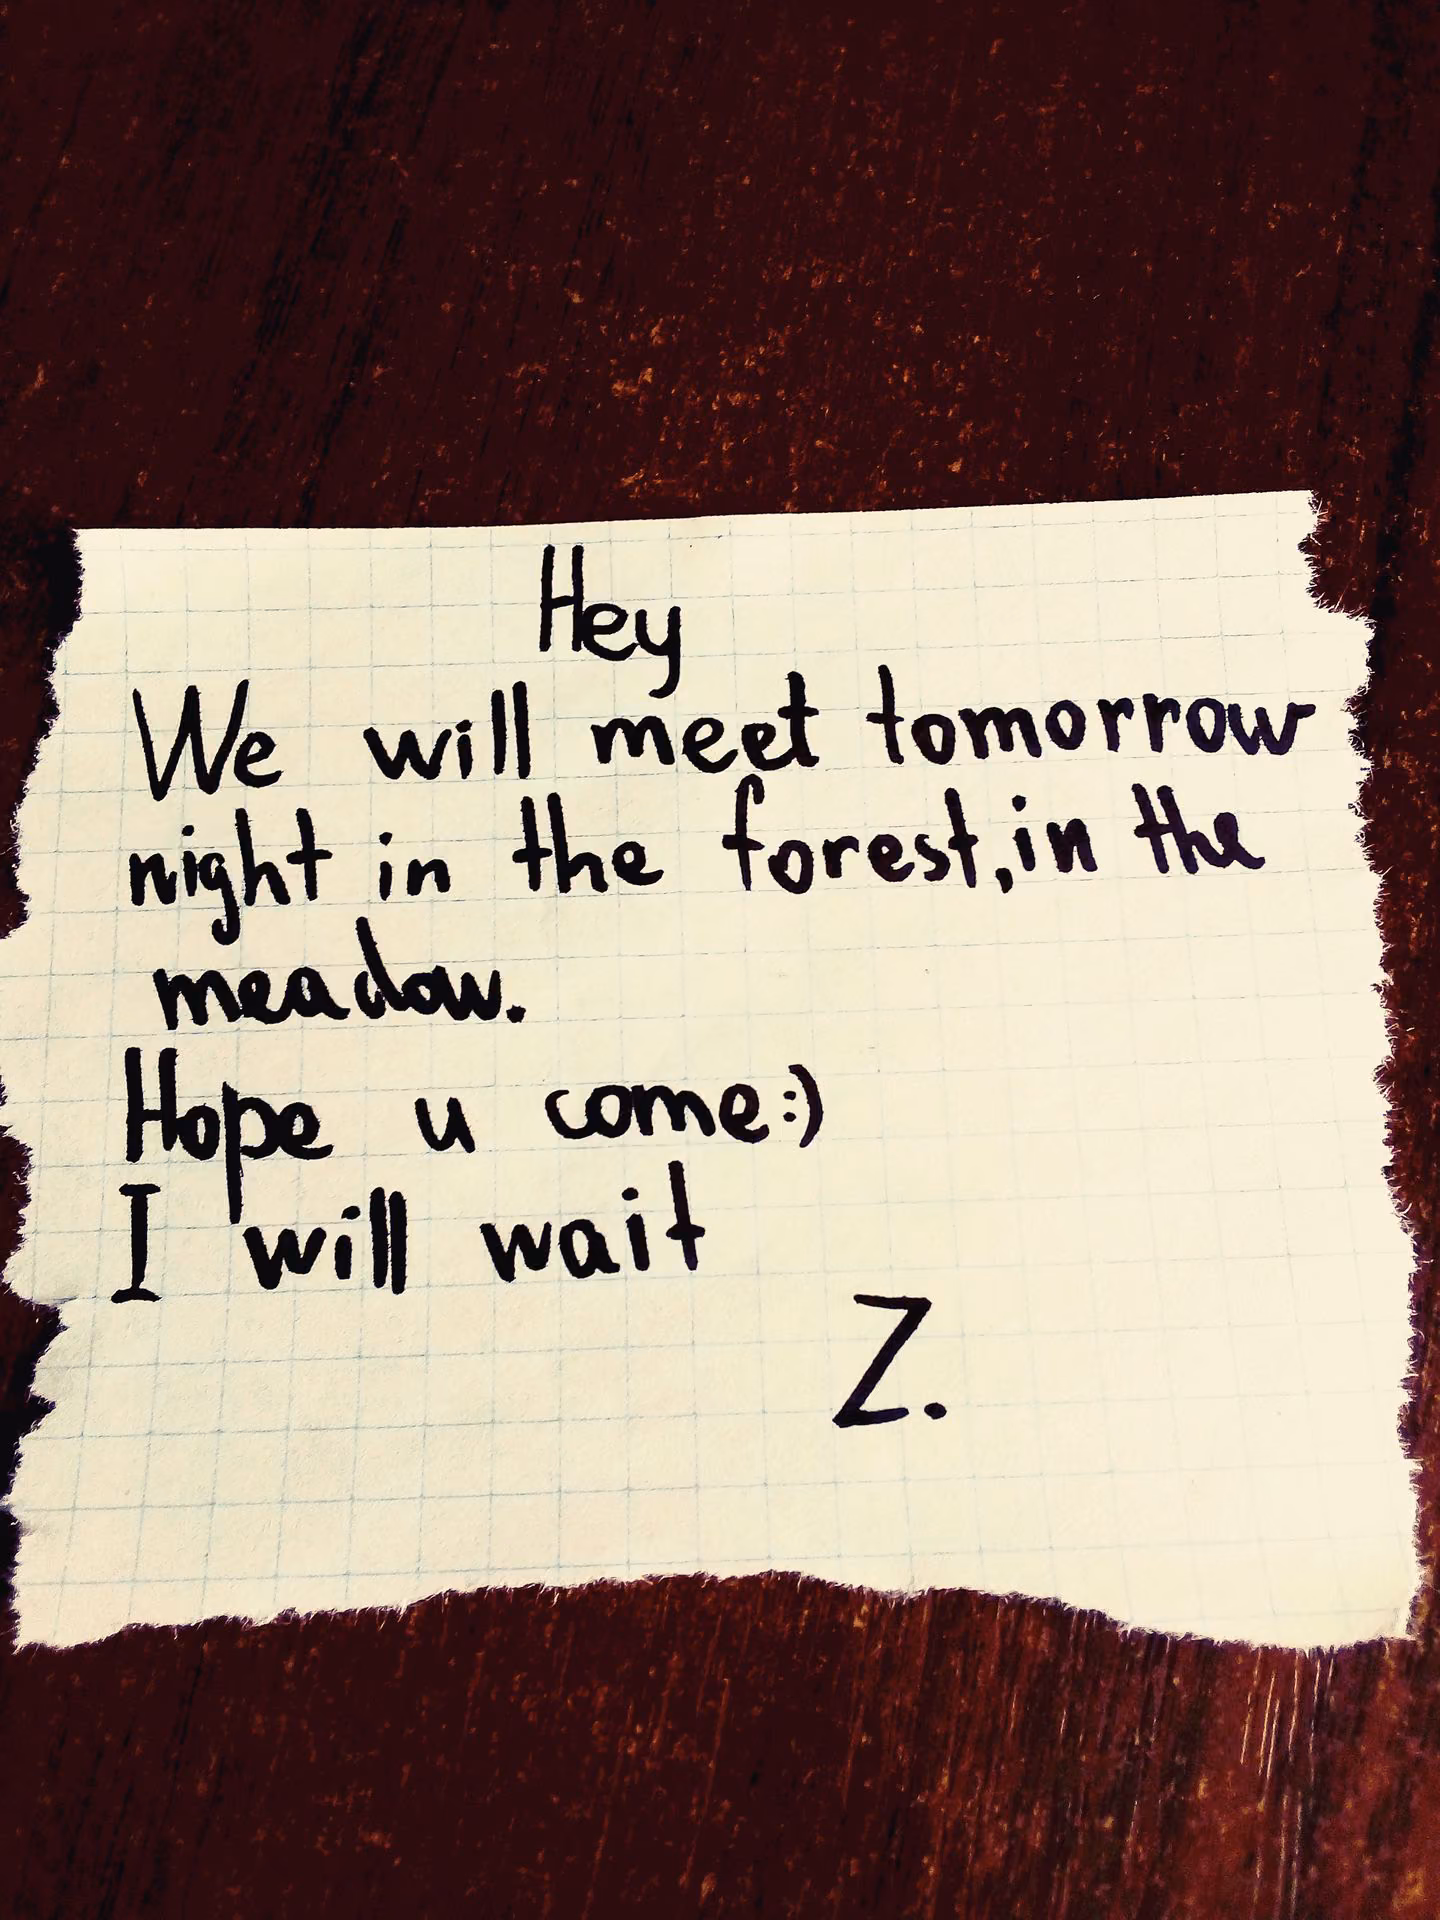 Hey
We will meet tomorrow
night in the forest, in the
meadow.
Hope u come:)
I will wait
Z.